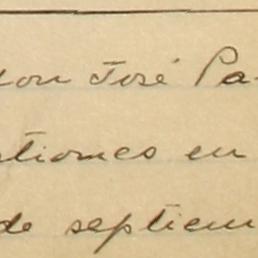 don José Pa-
stiones en
de septiem